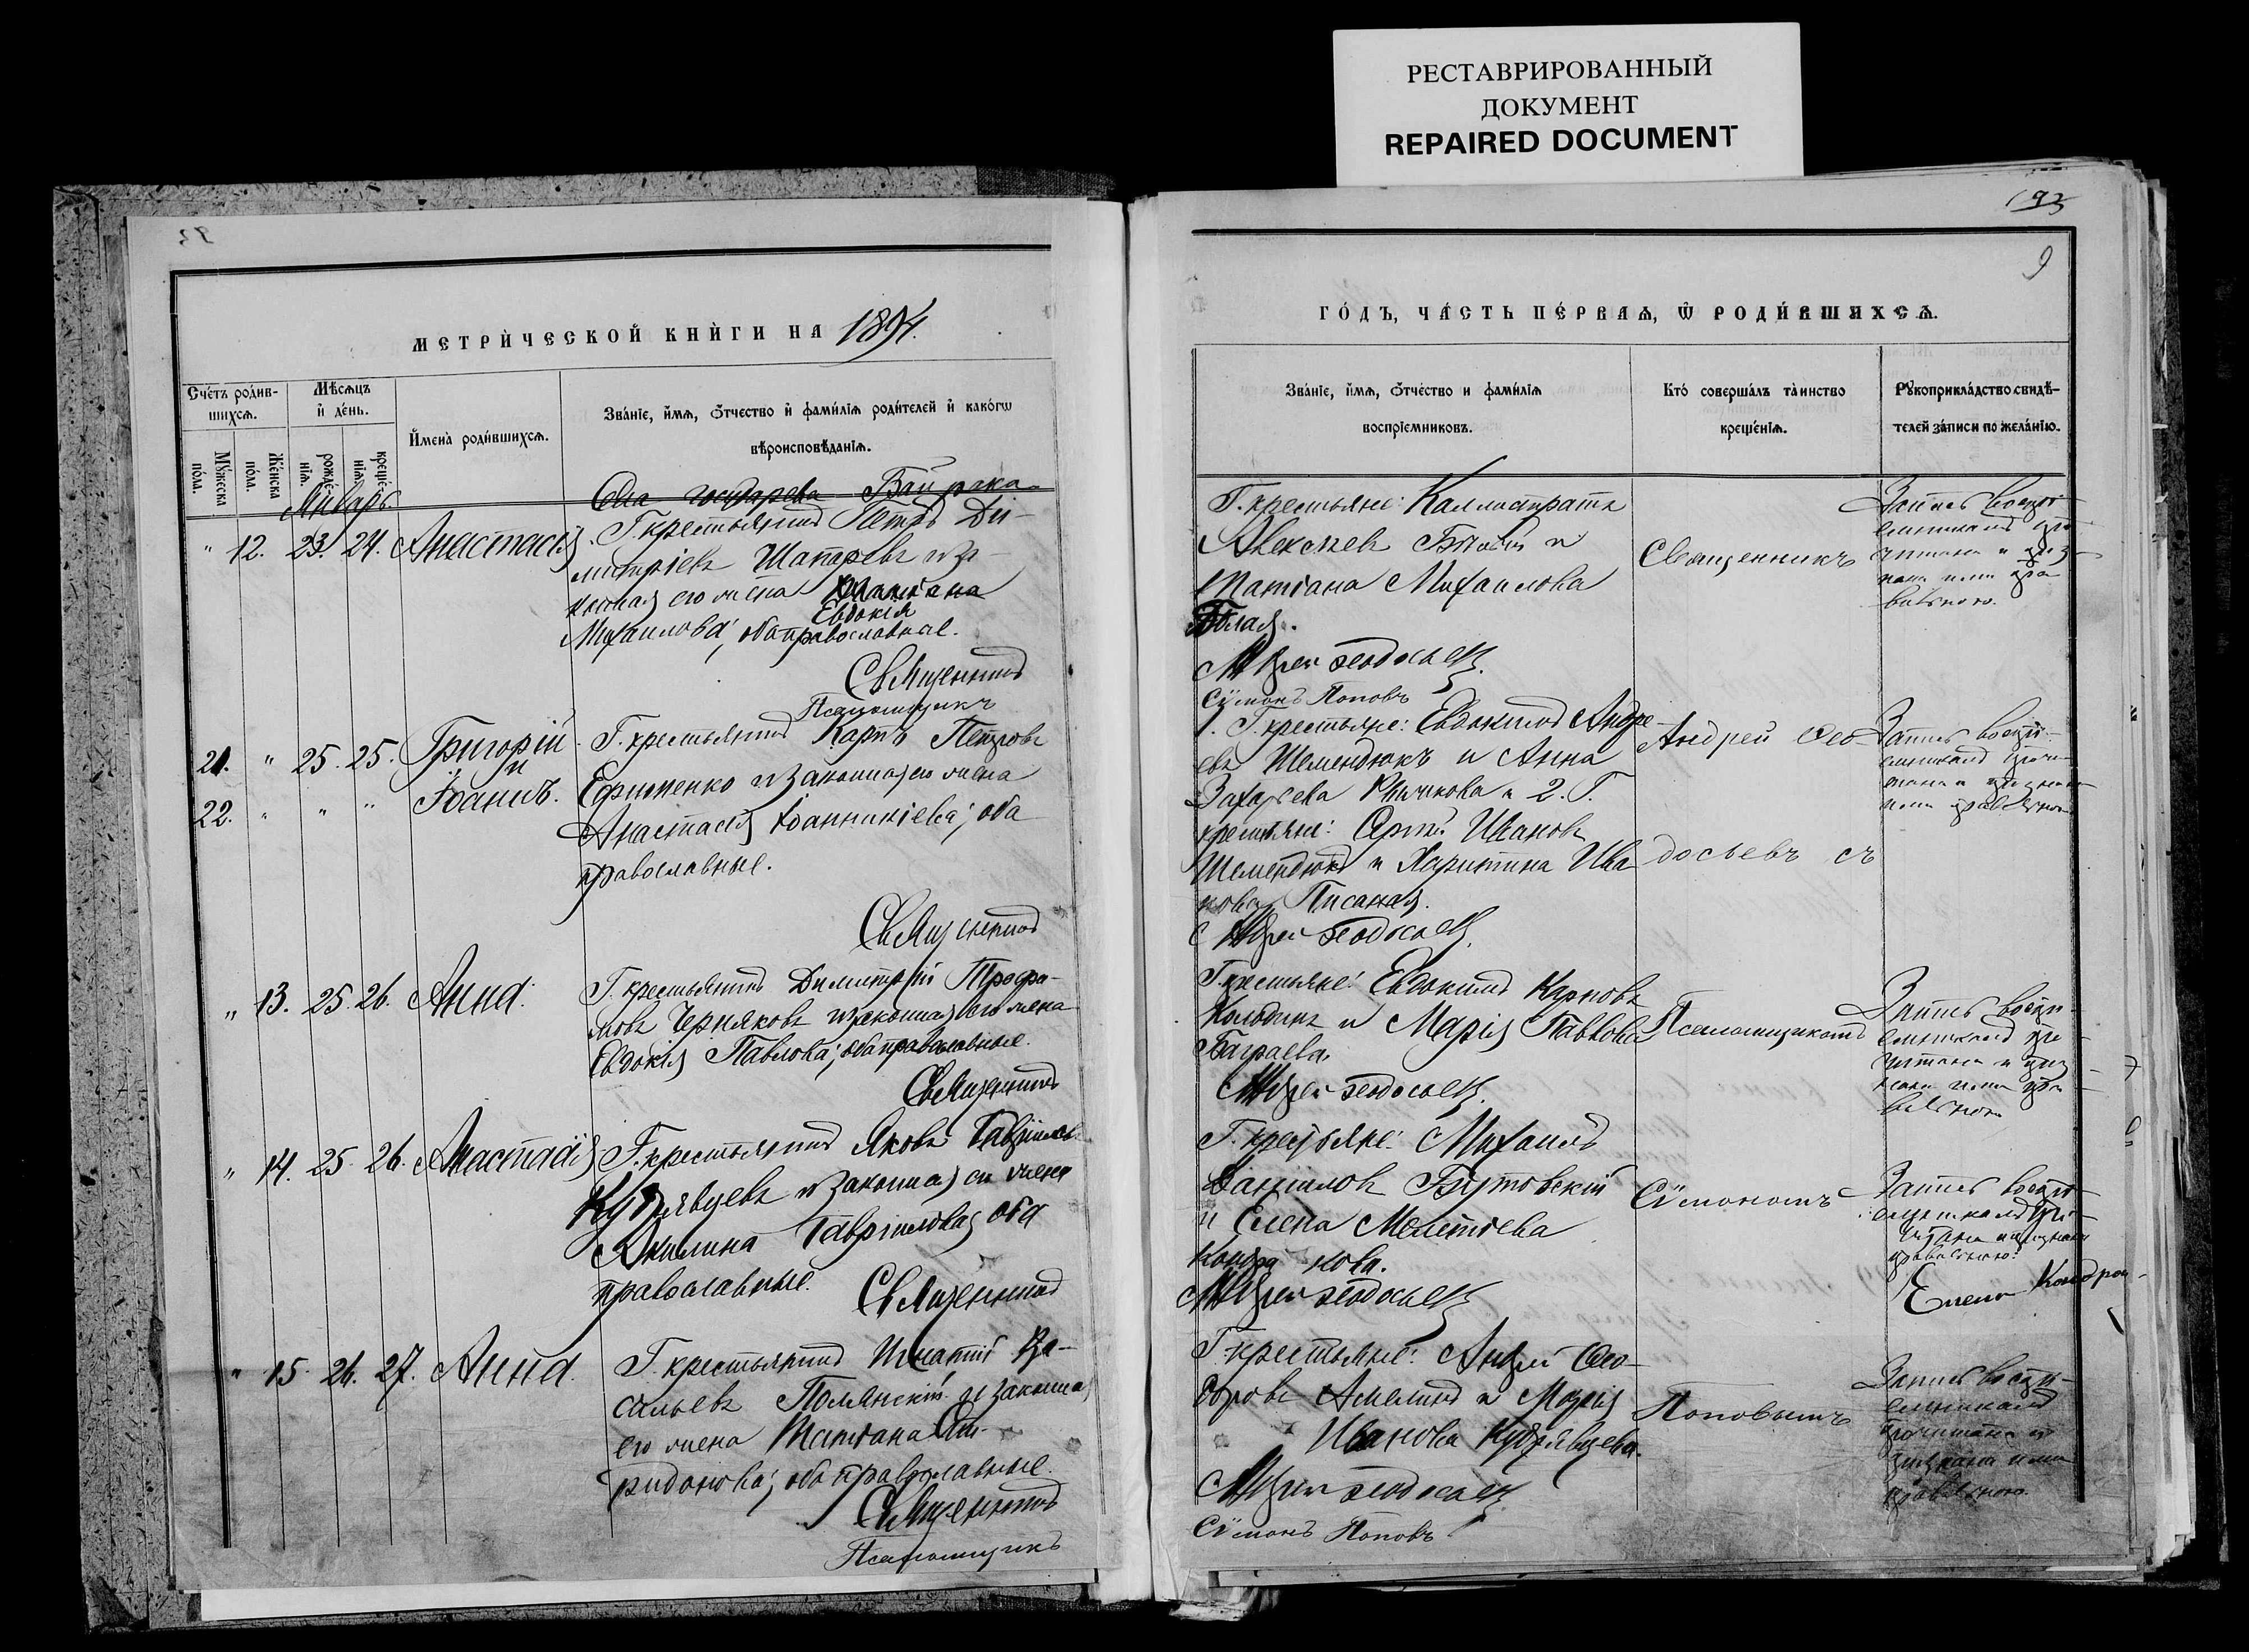 РЕСТАВРИРОВАННЫЙ
ДОКУМЕНТ
REPAIRED DOCUMENT
МЕТРИ́ЧЕСКОЙ КНИ́ГИ НА 1894.
Сче́тъ роди́в-
шихсѧ.
Мѣ́сѧцъ
и҆ де́нь.
И҆мена̀ роди́вшихсѧ.
Зва́нїе, и҆́мѧ, ѻ҆́тчество и҆ фами́лїѧ роди́телей и҆ како́гѡ
вѣроисповѣ́данїѧ.
Мꙋ́жеска
по́ла.
Же́нска
по́ла.
рожде́-
нїѧ.
креще́-
нїѧ.
Январь.
Села Государева Байрака.
" 12. 23. 24. Анастасія. Г. крестьянинъ Петръ Ди-
митріевъ Шапаревъ и за-
конная его жена
Евдокія
Михаилова; оба православные.
Священникъ
Псаломщикъ
21. " 25. 25. Григорій Г. крестьянинъ Карпъ Петровъ
и
Ефименко и законная его жена
22. " " " Іоаннъ.
Анастасія Іоанникіева; оба
православные.
Священникъ
" 13. 25. 26. Анна. Г. крестьянинъ Димитрій Трофи-
мовъ Черняковъ и законная его жена
Евдокія Павлова; оба православные.
Священникъ
" 14. 25. 26. Анастасія Г. крестьянинъ Яковъ Гавріиловъ
Кудрявцевъ и законная его жена
Акилина Гавріилова; оба
православные.
Священникъ
" 15. 26. 27. Анна. Г. крестьянинъ Игнатій Ва-
сильевъ Полянскій и законная
его жена Татіана Спи-
ридонова; оба православные.
Священникъ
Псаломщикъ
93
9
ГО́ДЪ, ЧА́СТЬ ПЕ́РВАѦ, Ѡ҆ РОДИ́ВШИХСѦ.
Зва́нїе, и҆́мѧ, ѻ҆́тчество и фами́лїѧ
воспрїе́мниковъ.
Кто́ соверша́лъ та́инство
креще́нїѧ.
Рꙋкоприкла́дство свидѣ́-
телей за́писи по жела́нїю.
Г. крестьяне: Каллистратъ
Алексѣевъ Бѣлый и
Татіана Михаилова
Бѣлая.
Андрей Ѳеодосьевъ.
Сѵмонъ Поповъ
Священникъ
Запись воспрі-
емникамъ про-
читана и приз-
нана ими пра-
вильною.
1. Г. крестьяне: Евдокимъ Андре-
евъ Шемендюкъ и Анна
Захарьева и 2. Г.
крестьяне: Ивановъ
Шемендюкъ и Харитина Ива-
нова Писаная.
Андрей Ѳеодосьевъ.
Андрей Ѳео-
досьевъ съ
Запись воспрі-
емникамъ прочи-
тана и признана
ими правильною
Г. крестьяне: Евдокимъ Карповъ
Колодинъ и Марія Павлова
Баграева.
Андрей Ѳеодосьевъ.
Псаломщикомъ
Запись воспрі-
емникамъ про-
читана и приз-
нана ими пра-
вильною
Г. крестьяне: Михаилъ
Даніиловъ Бутовскій
и Елена Мелетіева
Кондракова.
Андрей Ѳеодосьевъ
Сѵмономъ
Запись воспрі-
емникамъ про-
читана и признана
правильною:
Елена Кондрак-
Г. крестьяне: Андрей Ѳео-
доровъ Амелинъ и Марія
Иванова Кудрявцева.
Андрей Ѳеодосьевъ
Сѵмонъ Поповъ
Поповымъ
Запись воспрі-
емникамъ
прочитана и
признана ими
правильною.